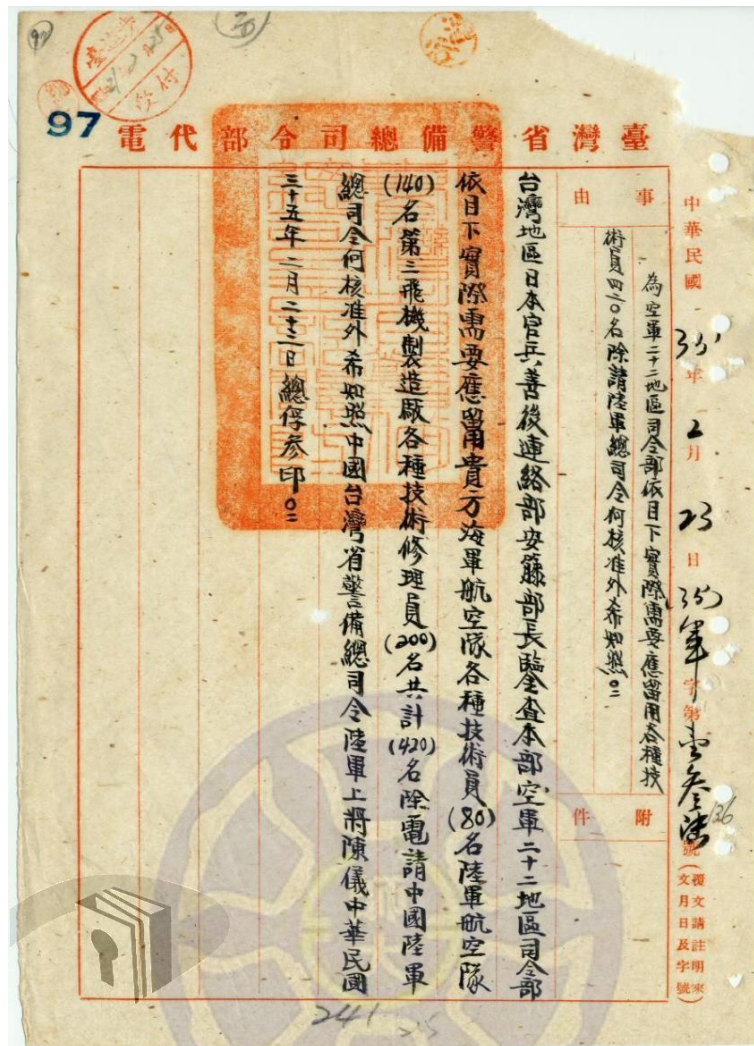 臺灣省警備總司令部代電
中華民國35年2月23日(35)軍字第壹叁陸號(覆文請註明來文月日及字號)
136
事由
為空軍二十二地區司令部依目下實際需要應留用各種技
術員四二〇名除請陸軍總司令何核准外希知照〇二
附件
台灣地區日本官兵善後連絡部安藤部長鑒查本部空軍二十二地區司令部
依目下實際需要應留用貴方海軍航空隊各種技術員(80)名陸軍航空隊
(140)名第三飛機製造廠各種技術修理員(200)名共計(420)名除電請中國陸軍
總司令何核准外希知照中國台灣省警備總司令陸軍上將陳儀中華民國
三十五年二月二十三日總俘參印〇二
97
241